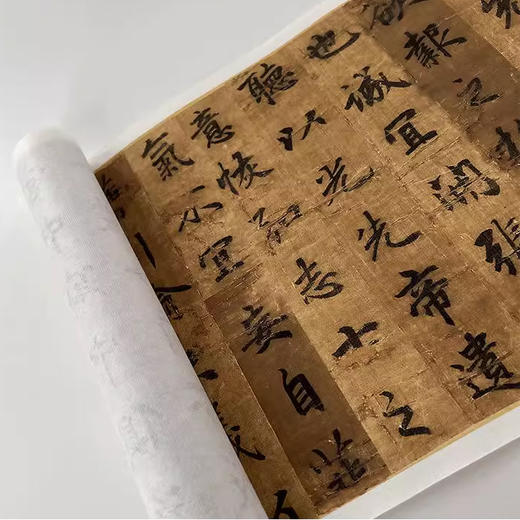 欲報之
也誠宜開張
聽以光先帝遺
意恢弘志士之
氣不宜妄自菲